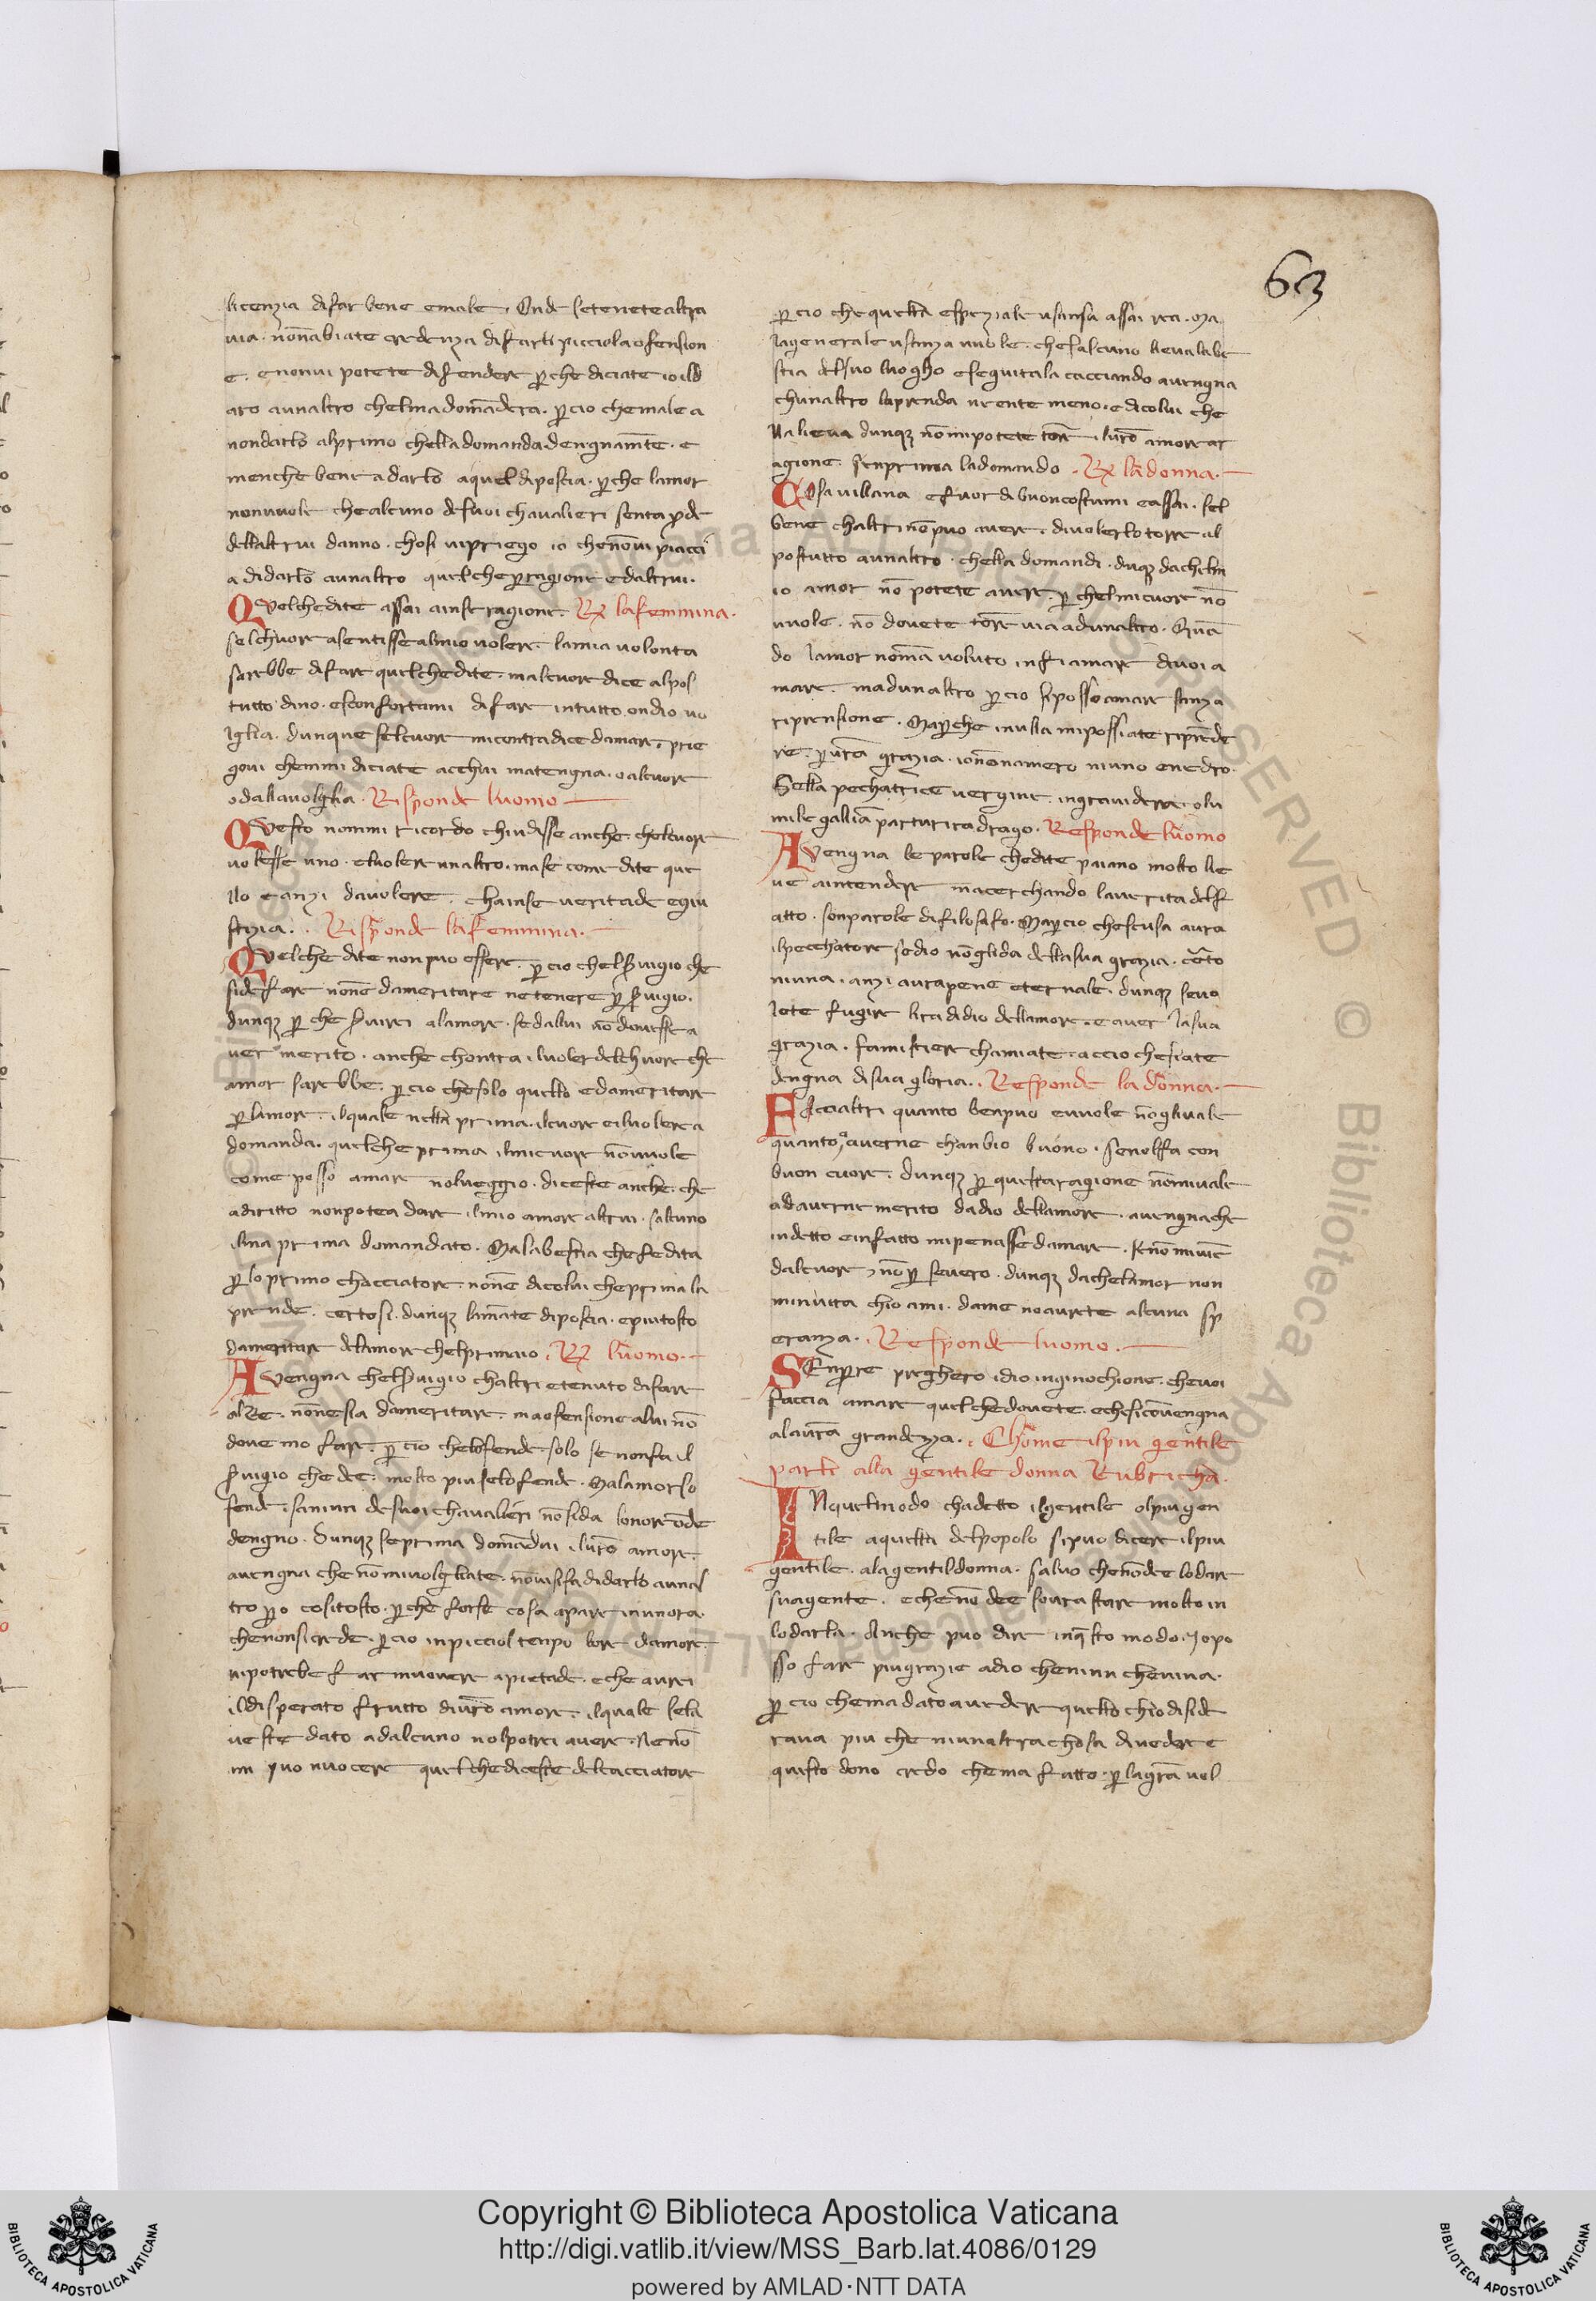 63
licenzia difar bene emale. Onde setenete altra
uia. nōnabiate credenza difarti picciola ofension
e. enonui potete difendere ꝑche diciate io ild
aro aunaltro chelma domādera. ꝑcio chemale a
nondarlo alprimo chella domanda dengnamēte. e
menche bene adarlo aquel diposcia. ꝑche lamor
nonuuole chealcuno desuoi chaualieri senta ꝓde
dellaltrui danno. chosi uipriego io chenōui piacci
a didarlo aunaltro quelcheꝑragione edaltrui.
Quelchedite assai ainse ragione. Rx lafemmina.
selchuore asentisse almio uolere. lamia uolonta
sarebbe difare quelchedite. malcuore dice alpos
tutto dino. esconfortami difare intutto ondio uo
lglia. dunque selcuore micontradice damar. prie
goui chemmi diciate acchui matengna. oalcuore
odallauolglia. Risponde luomo
Questo nonmi ricordo chiudisse anche. chelcuore
uolesse uno. eluolere unaltro. mase come dite que
llo eanzi dauolere. chainse ueritade egiu
stizia. Risponde lafemmina.
Quelche dite nonpuo essere. ꝑcio chelseruigio che
sidefare nonne dameritare netenere ꝑ seruigio.
dunqꝫ ꝑche seruirei alamore. sedallui nō douesse a
uer merito. anche chontra iluoler delchuore che
amor sarebbe. ꝑcio chesolo quello edameritare
ꝑlamore. ilquale nella prima. ilcuore eiluolere a
domanda. quelche prima ilmicuore nōnuuole
come posso amare nolueggio. diceste anche. che
adiritto nonpotea dare ilmio amore altrui. salcuno
ilma prima domandato. Malabestia chefedita
ꝑ lo primo chacciatore. nonne dicolui cheprima la
prende. certosi. dunqꝫ lamāte diposcia. epiutosto
dameritare delamore chelprimaio. Rx luomo.
Auengna chelseruigio chaltri etenuto difare
alRe. nōnesia dameritare. maofensione alui nō
doue mo fare. ꝑcio chelofende. solo se nonfa il
seruigio che dee. molto piu selofende. Malamorso
fende. samini desuoi chaualieri nō sida lonore onde
dengno. Dunqꝫ seprima domādai iluro amore.
auengna che nōmiuolgliate. nōuisifa didarlo aunal
tro ꝑo cositosto. ꝑche forse cosa apare inunora.
chenonsicrede. ꝑcio inpicciol tenpo bore damore
uipotrebe far muouere apietade. eche aurei
ildisperato frutto diuro amore. ilquale sela
ueste dato adalcuno nolpotrei auere. Nenō
mi puo nuocere quelchediceste delcacciatore
ꝑcio che quella espeziale usansa assai rea. ma
lagenerale usanza uuole. chesalcuno lieualabe
stia delsuo luogho esequitala cacciando auengna
chunaltro laprenda neente meno. edicolui che
llalieua dunqꝫ nōmipotete torre iluro amorear
agione. senprima ladomando. Rx la donna.
Cosauillana efuor dibuoncostumi eassai. sel
bene chaltri nōpuo auere. diuolerlo torre al
postutto aunaltro. chella domandi. duqꝫ dachelm
io amor nō potete auere. ꝑchelmicuore nō
uuole. nō douete torre uia adunaltro. Quā
do lamor nōmā uoluto infiamare diuoi a
mare. madunaltro ꝑcio siposso amare sanza
riprensione. Maꝑche inulla mipossiate riprēde
re. ꝑ urā grazia. ionōnamero niuno enedro.
Sella pechatrice uergine. ingrauidera. olu
mile galliā parturira drago. Responde luomo
Auengna le parole chedite paiano molto lie
ue aintendere macerchando lauerita delf
atto. sonparole difilosafo. Maꝑcio chescusa aura
ilpecchatore sedio nōglida dellasua grazia. cōto
niuna. anzi aurapene eternale. dunqꝫ seuo
lete fugire lira didio dellamore. eauer lasua
grazia. famistiere chamiate. accio chesiate
dengna disua gloria. Responde la donna.
Facciaaltri quanto benpuo euuole nōgliuale
quanto auerne chanbio buono. senolfa con
buon cuore. dunqꝫ ꝑ questaragione nōmiuale
adauerne merito dadio dellamore. auengnache
indetto einfatto mipenasse damare. senōmiuiē
dalcuore nōꝑseuero. dunqꝫ dachelamor non
minuita chio ami. dame noaurete alcuna sp
eranza. Responde luomo.
Senpre preghero idio inginochione. cheuoi
faccia amare quelchedouete. echesicōuengna
alaurā grandezza. Chome ilpiu gentile
parli alla gentile donna Rubricha.
INquelmodo chadetto ilgentile olpiugen
tile aquella delpopolo sipuo dicere ilpiu
gentile. alagentildonna. saluo chenōdee lodare
suagente. echenō dee soura stare molto in
lodarla. Anche puo dire inqsto modo. Iopo
sso fare piugrazie adio chenniun cheuiua.
ꝑcio chema dato auedere quello chio diside
raua piu che niunaltra chosa diuedere
questo dono credo chema fatto. ꝑ lagrā uol
Copyright © Biblioteca Apostolica Vaticana
http://digi.vatlib.it/view/MSS_Barb.lat.4086/0129
powered by AMLAD·NTT DATA